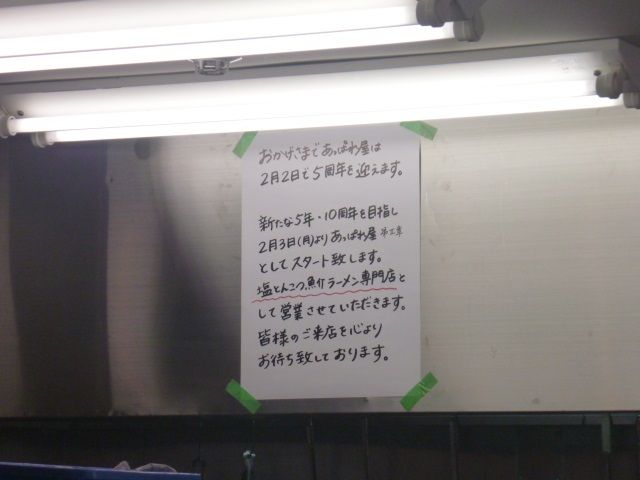 おかげさまで あっぱれ屋は
2月2日で5周年を迎えます。
新たな5年・10周年を目指し
2月3日(月)より あっぱれ屋 第二章
としてスタート致します。
塩とんこつ魚介ラーメン専門店と
して営業させていただきます。
皆様のご来店を心より
お待ち致しております。